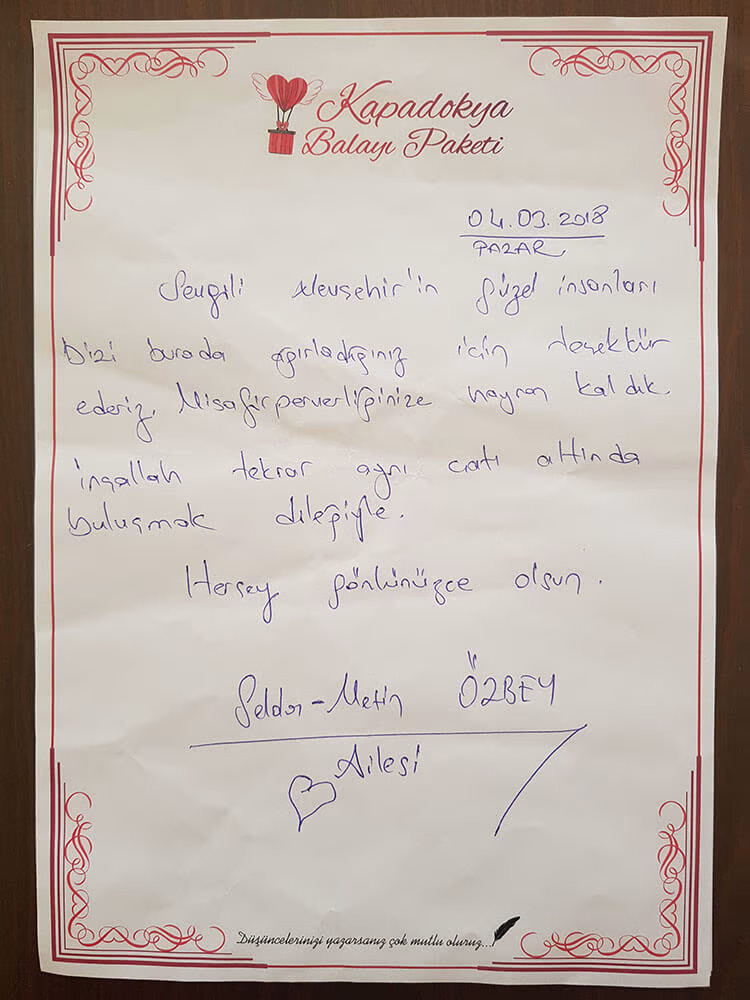 Kapadokya
Balayı Paketi
04.03.2018
PAZAR
Sevgili Nevşehir'in güzel insanları
Bizi burada ağırladığınız için teşekkür
ederiz. Misafirperverliğinize hayran kaldık.
inşallah tekrar aynı çatı altında
buluşmak dileğiyle.
Herşey gönlünüzce olsun.
Selda-Metin ÖZBEY
Ailesi
Düşüncelerinizi yazarsanız çok mutlu oluruz...